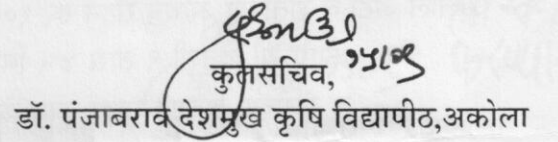 कुलसचिव,
डॉ. पंजाबराव देशमुख कृषि विद्यापीठ,अकोला